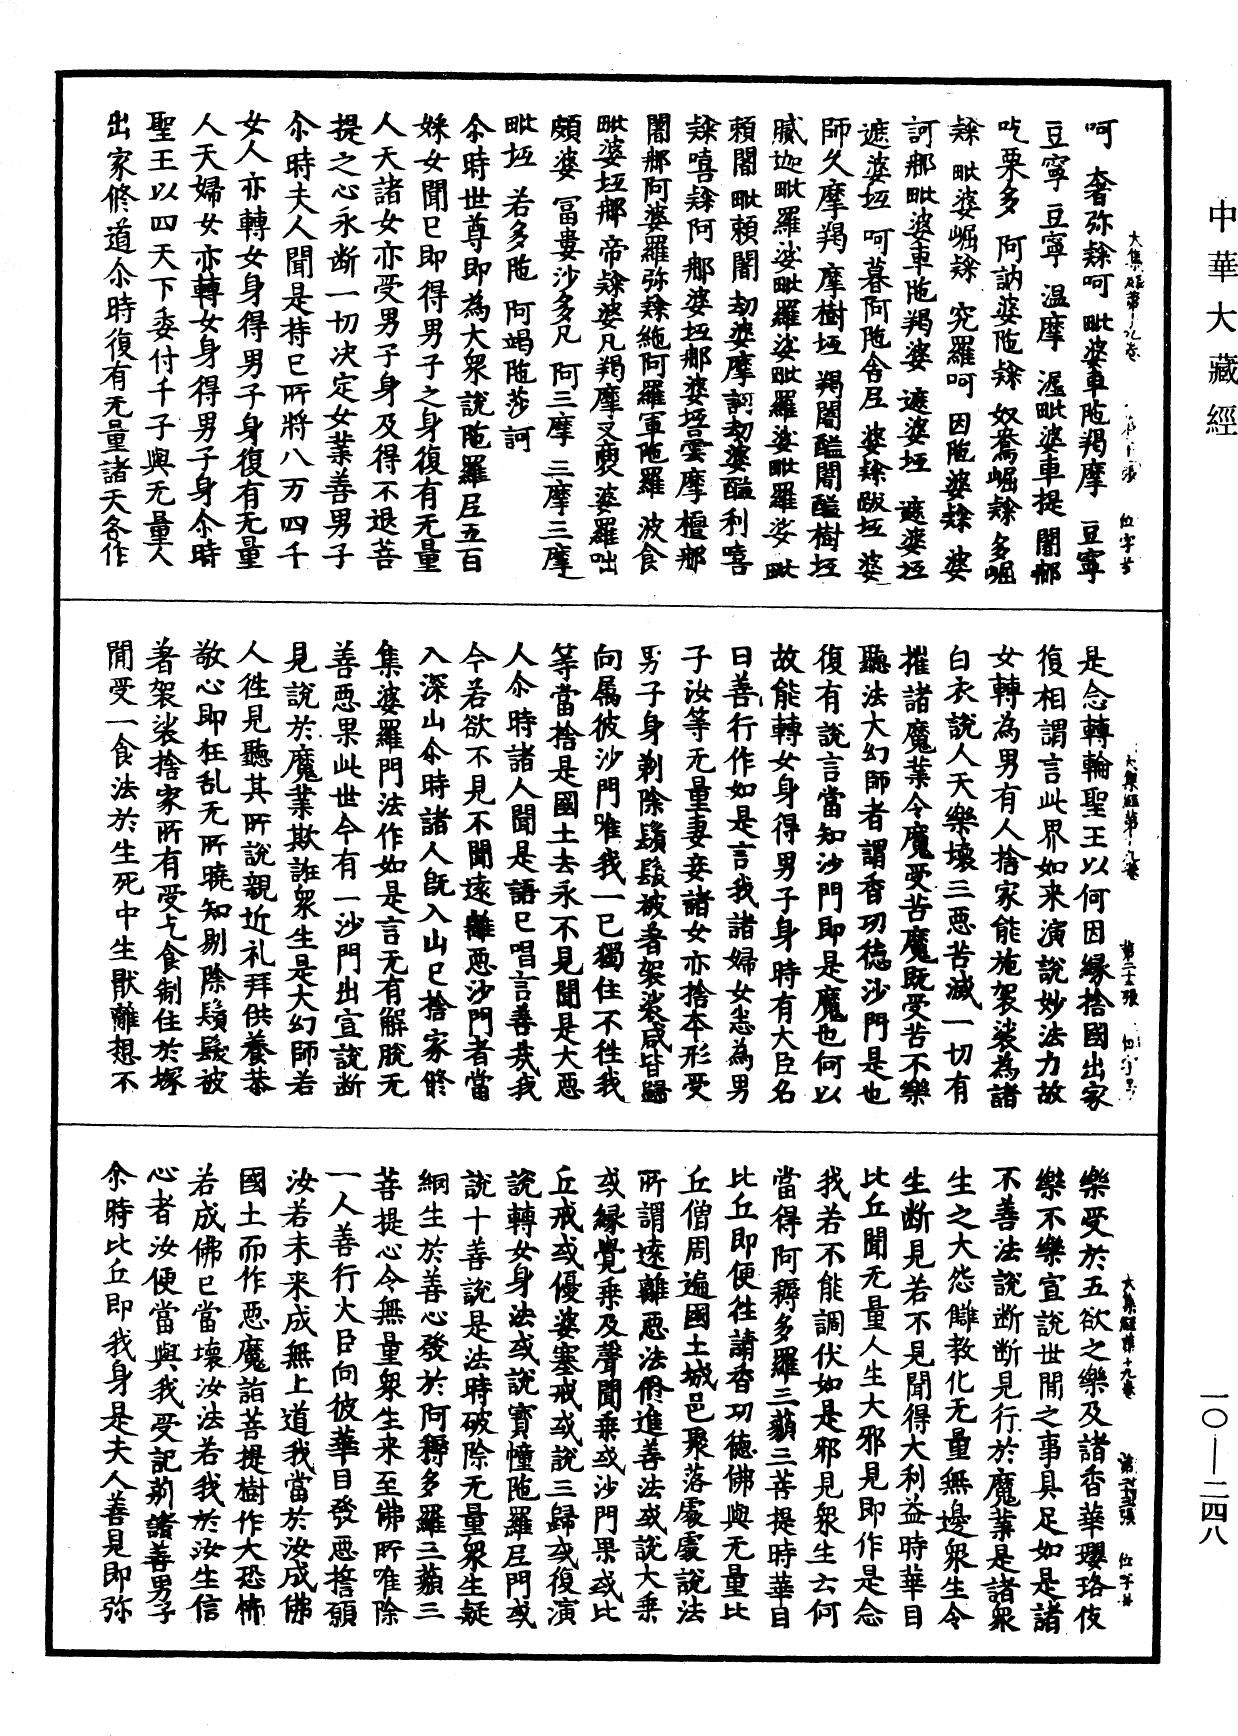 中華大藏經
呵 奢弥𨽻呵 毗婆車陁羯摩 豆寧
豆寧 豆寧 温摩 溼毗婆車提 闍郍
吃栗多 阿訥婆陁𨽻 奴騫崛𨽻多崛
𨽻 毗婆崛𨽻 究羅呵 因陁婆𨽻 婆
訶郍毗婆車陁羯婆 遮婆坘 遮婆坘
遮婆坘 呵暮阿陁舍𡰱 婆𨽻跋坘 婆
師久摩羯 摩樹坘 羯闍醯闍醯樹坘
膩迦毗羅娑毗羅娑毗羅娑毗羅娑 毗
賴闍 毗賴闍 劫婆摩訶劫婆醯利嘻
𨽻嘻𨽻阿郍婆坘郍婆坘雲摩檀郍
闍郍阿婆羅弥𨽻絁阿羅軍陁羅 波食
毗婆坘郍 帝𨽻婆凡羯摩叉褒 婆羅咄
頗婆 冨婁沙多凡 阿三摩 三摩三摩
毗坘 若多陁 阿竭陁莎訶
尒時世尊即為大衆說陁羅𡰱五百
婇女聞已即得男子之身復有无量
人天諸女亦受男子身及得不退菩
提之心永断一切决定女業善男子
尒時夫人聞是持已所將八万四千
女人亦轉女身得男子身復有无量
人天婦女亦轉女身得男子身尒時
聖王以四天下委付千子與无量人
出家修道尒時復有无量諸天各作
是念轉輪聖王以何因縁捨國出家
復相謂言此界如来演說妙法力故
女轉為男有人捨家能施袈裟為諸
白衣說人天樂壞三惡苦滅一切有
摧諸魔業令魔受苦魔既受苦不樂
聽法大幻師者謂香功德沙門是也
復有說言當知沙門即是魔也何以
故能轉女身得男子身時有大臣名
曰善行作如是言我諸婦女悉為男
子汝等无量妻妾諸女亦捨本形受
男子身剃除鬚髮被著袈裟咸皆歸
向属彼沙門唯我一已獨住不徃我
等當捨是國土去永不見聞是大惡
人尒時諸人聞是語已唱言善哉我
今若欲不見不聞遠離惡沙門者當
入深山尒時諸人旣入山已捨家修
集婆羅門法作如是言无有解脫无
善惡果此世今有一沙門出宣說断
見說於魔業欺誑衆生是大幻師若
人徃見聽其所說親近礼拜供養恭
敬心即狂乱无所曉知剔除鬚髮被
著袈裟捨家所有受乞食制住於塚
閒受一食法於生死中生猒離想不
樂受於五欲之樂及諸香華瓔珞伎
樂不樂宣說世閒之事具足如是諸
不善法說断断見行於魔業是諸衆
生之大怨讎教化无量無邊衆生令
生断見若不見聞得大利益時華目
比丘聞无量人生大邪見即作是念
我若不能調伏如是邪見衆生云何
當得阿耨多羅三藐三菩提時華目
比丘即便徃請香功德佛與无量比
丘僧周遍國土城邑聚落處處說法
所謂遠離惡法修進善法或說大乗
或縁覺乗及聲聞乗或沙門果或比
丘戒或優婆塞戒或說三歸或復演
說轉女身法或說寳幢陁羅𡰱門或
說十善說是法時破除无量衆生疑
網生於善心發於阿耨多羅三藐三
菩提心令無量衆生来至佛所唯除
一人善行大臣向彼華目發惡誓願
汝若未来成無上道我當於汝成佛
國土而作惡魔詣菩提樹作大恐怖
若成佛已當壞汝法若我於汝生信
心者汝便當與我受記莂諸善男子
尒時比丘即我身是夫人善見即弥
大集經第十九卷
一〇—二四八